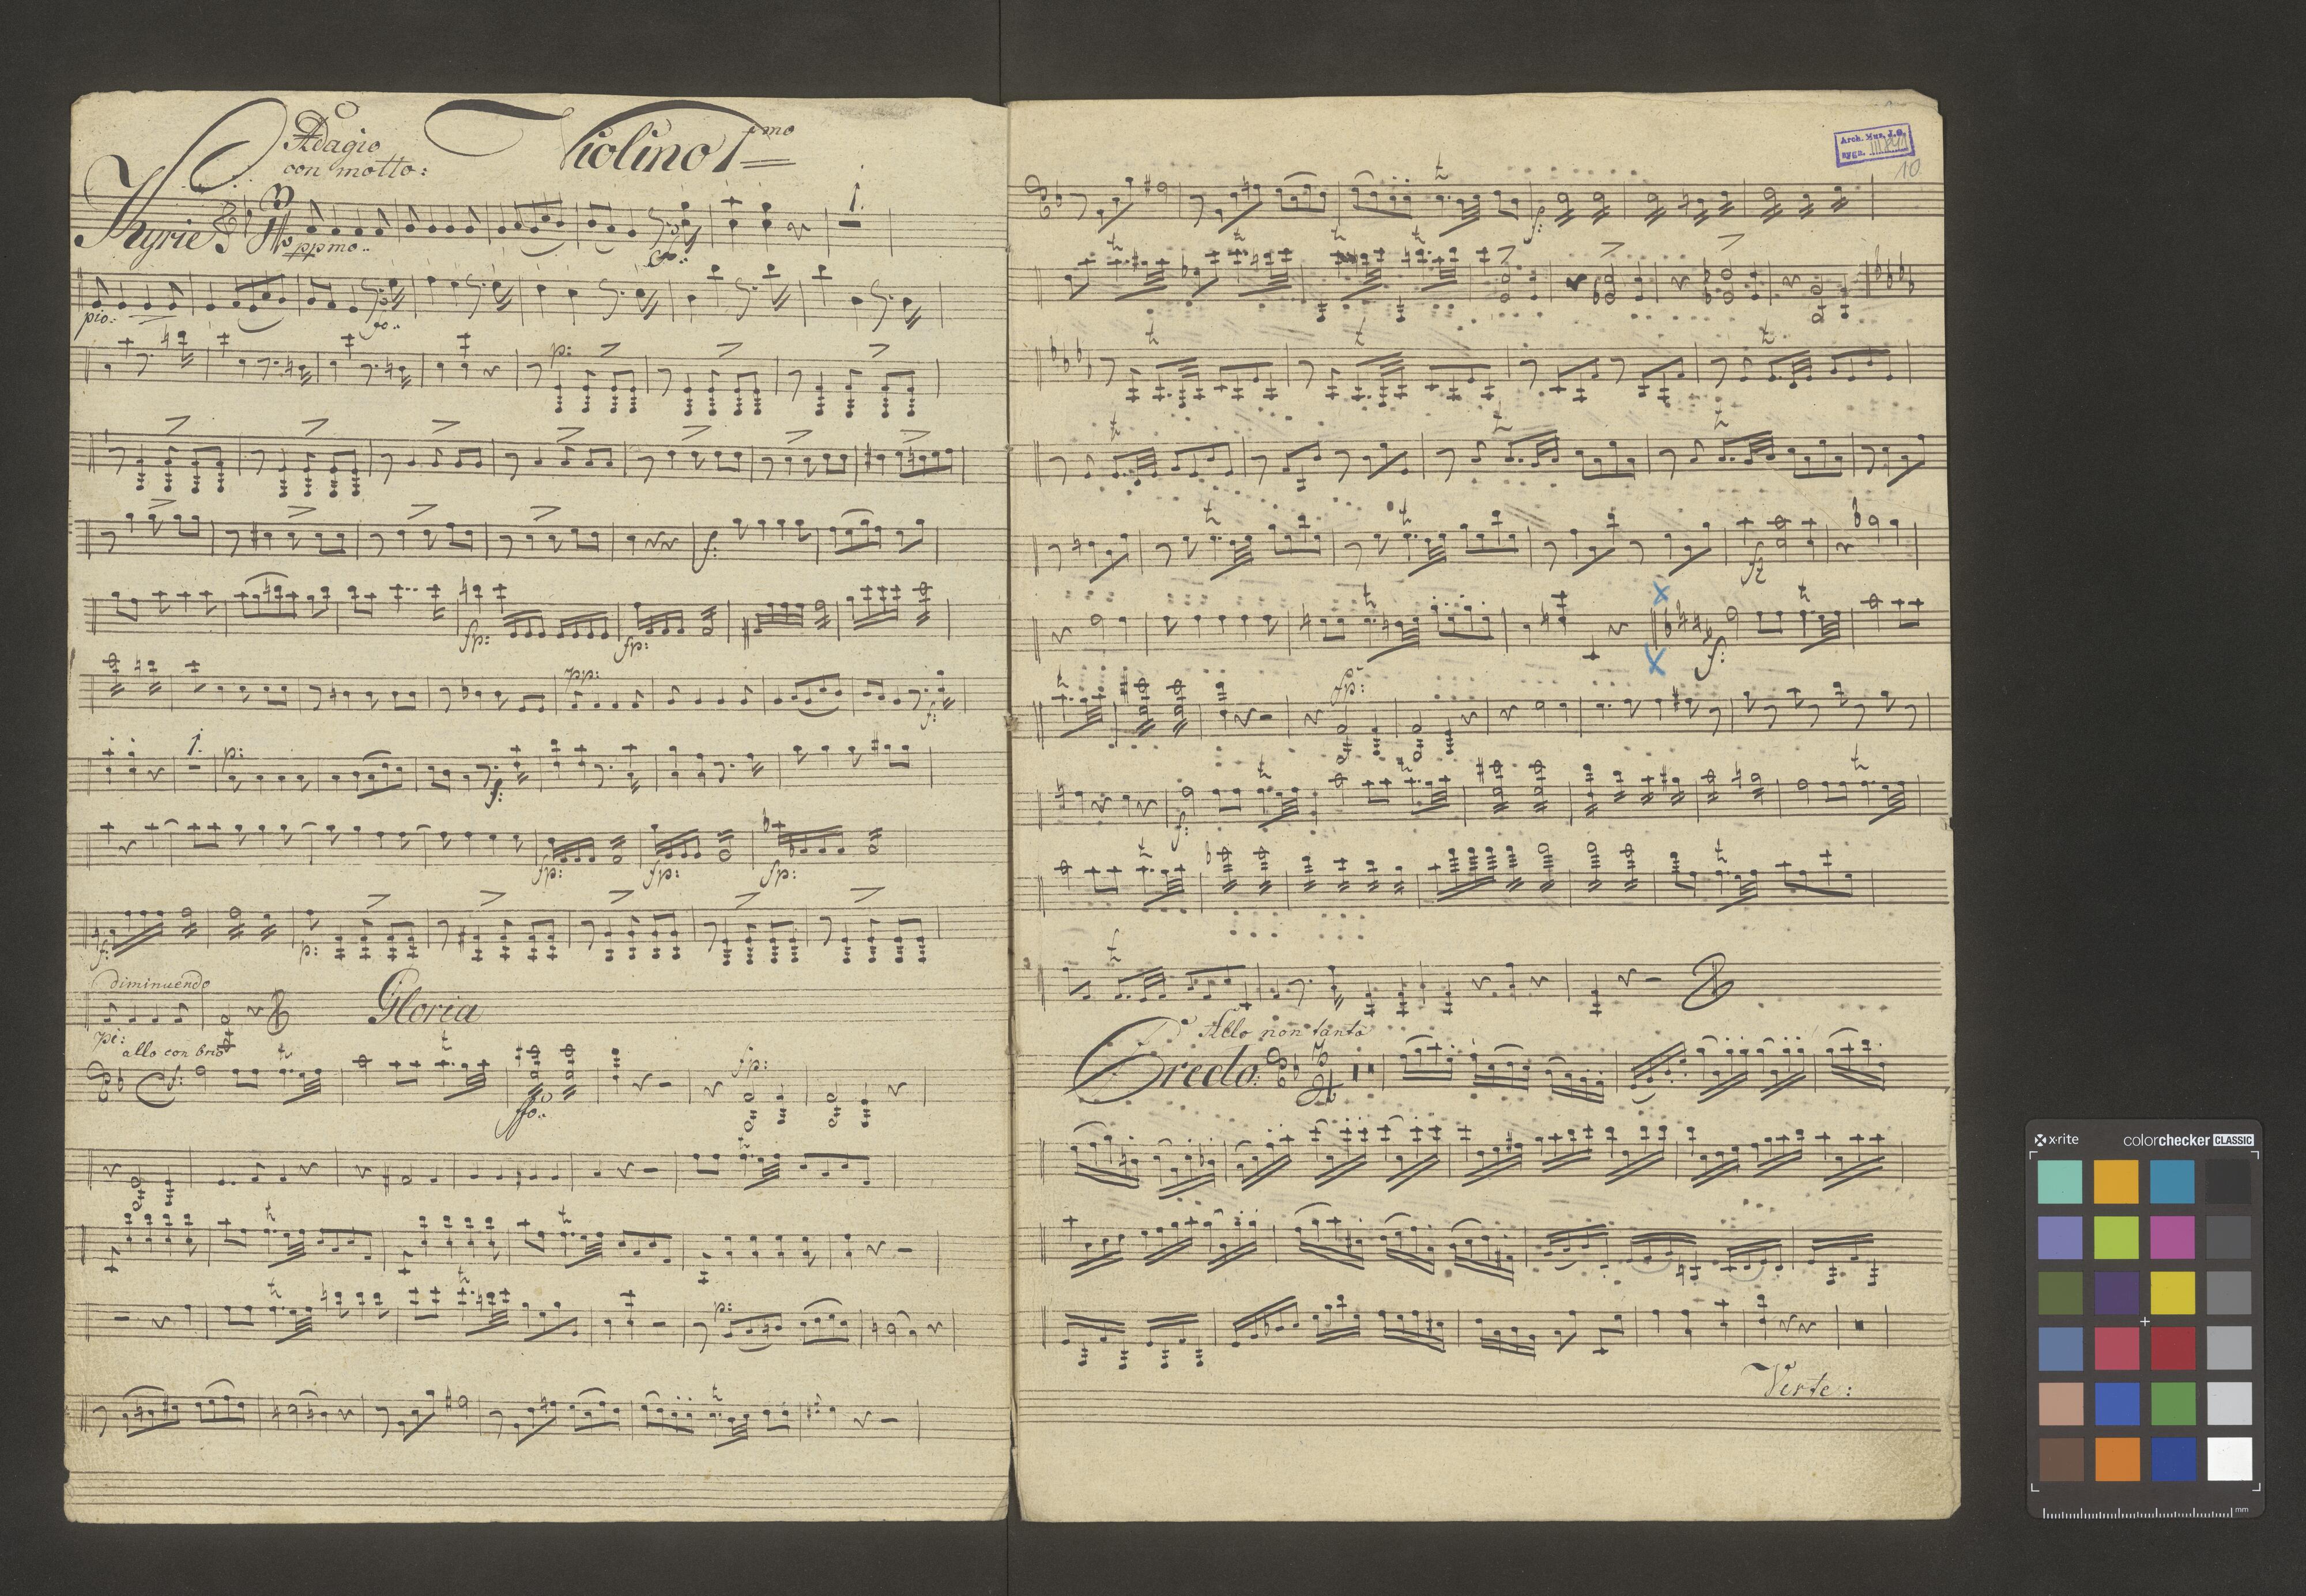 Adagio
con motto:
Violino 1mo
Kyrie
ppmo..
fo:
1.
pio:
fo..
p:
f:
fp:
fp:
pp:
f:
1.
p:
f:
fp:
fp:
fp:
f:
p:
diminuendo
Gloria
pi:
allo con brio
f:
ffo..
fp:
p:
Arch. Mus. J.G.
sygn.
10
f:
fz
f:
fp:
f:
Allo non tanto
Credo:
Verte:
x-rite
colorchecker CLASSIC
mm